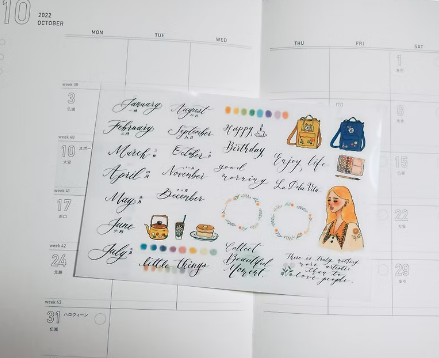 10
2022
OCTOBER
MON
TUE
WED
THU
FRI
SAT
1
3
10
17
24
31
ハロウィーン
8
15
22
29
January
February
March
April
May
June
July
August
September
October
November
December
Happy
Birthday
good
morning
Enjoy life
little things
Collect
Beautiful
Moment
There is truly nothing
more artistic
than to
love people.